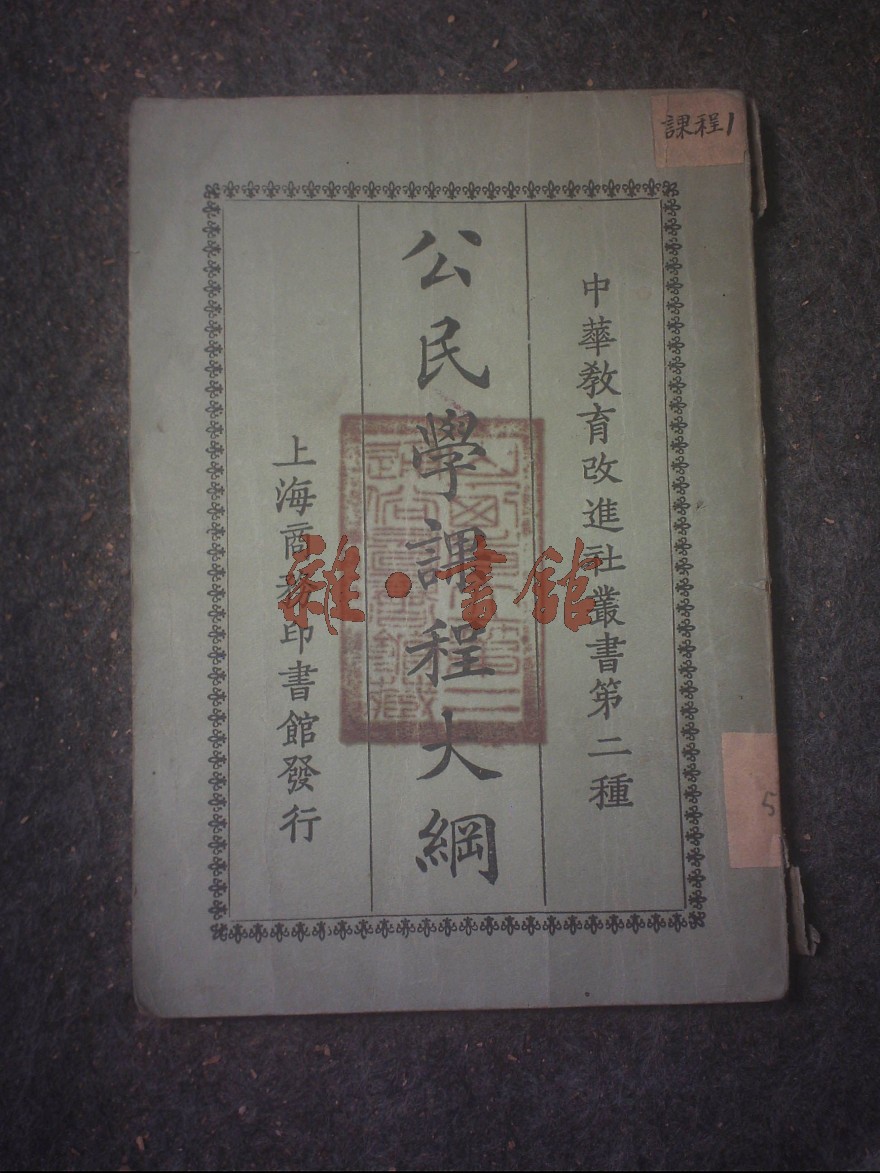 課程1
中華教育改進社叢書第二種
公民學課程大綱
上海商務印書館發行
雜·書館
5